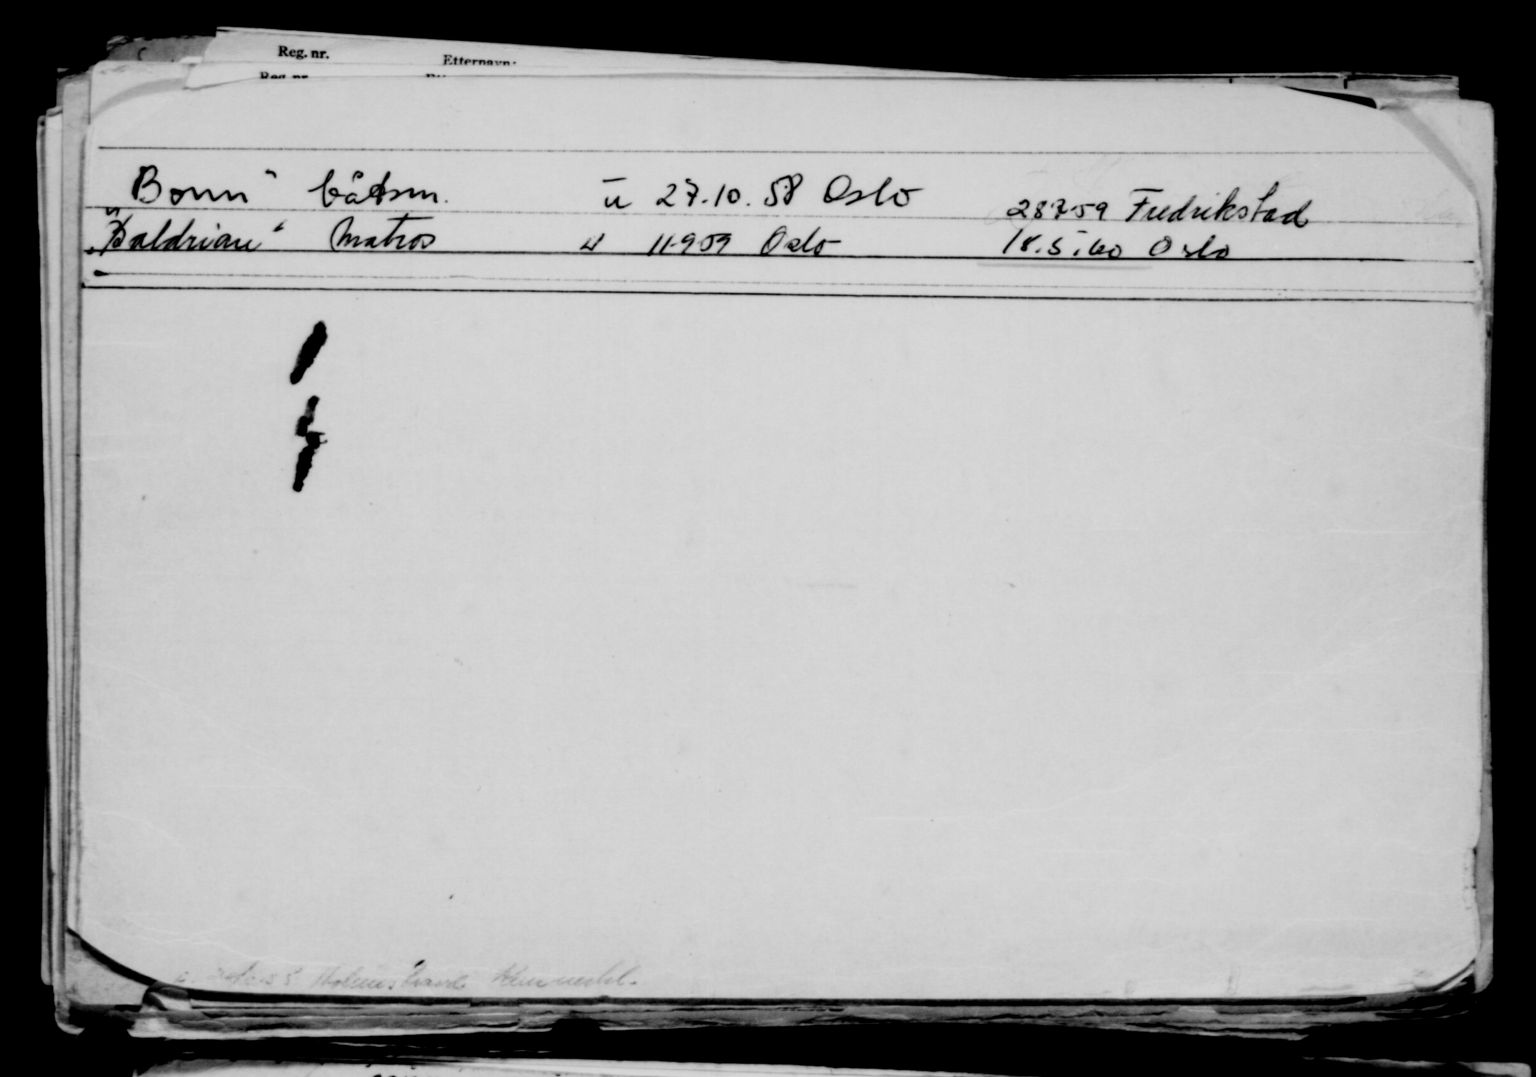 Reg. nr. Etternavn:
Reg. nr.
Bonn" båtsm. u 27.10.58 Oslo 28759 Fredrikstad
"Baldrian" Matros u 11-9-59 Oslo 18.5.60 Oslo
Holmestrand